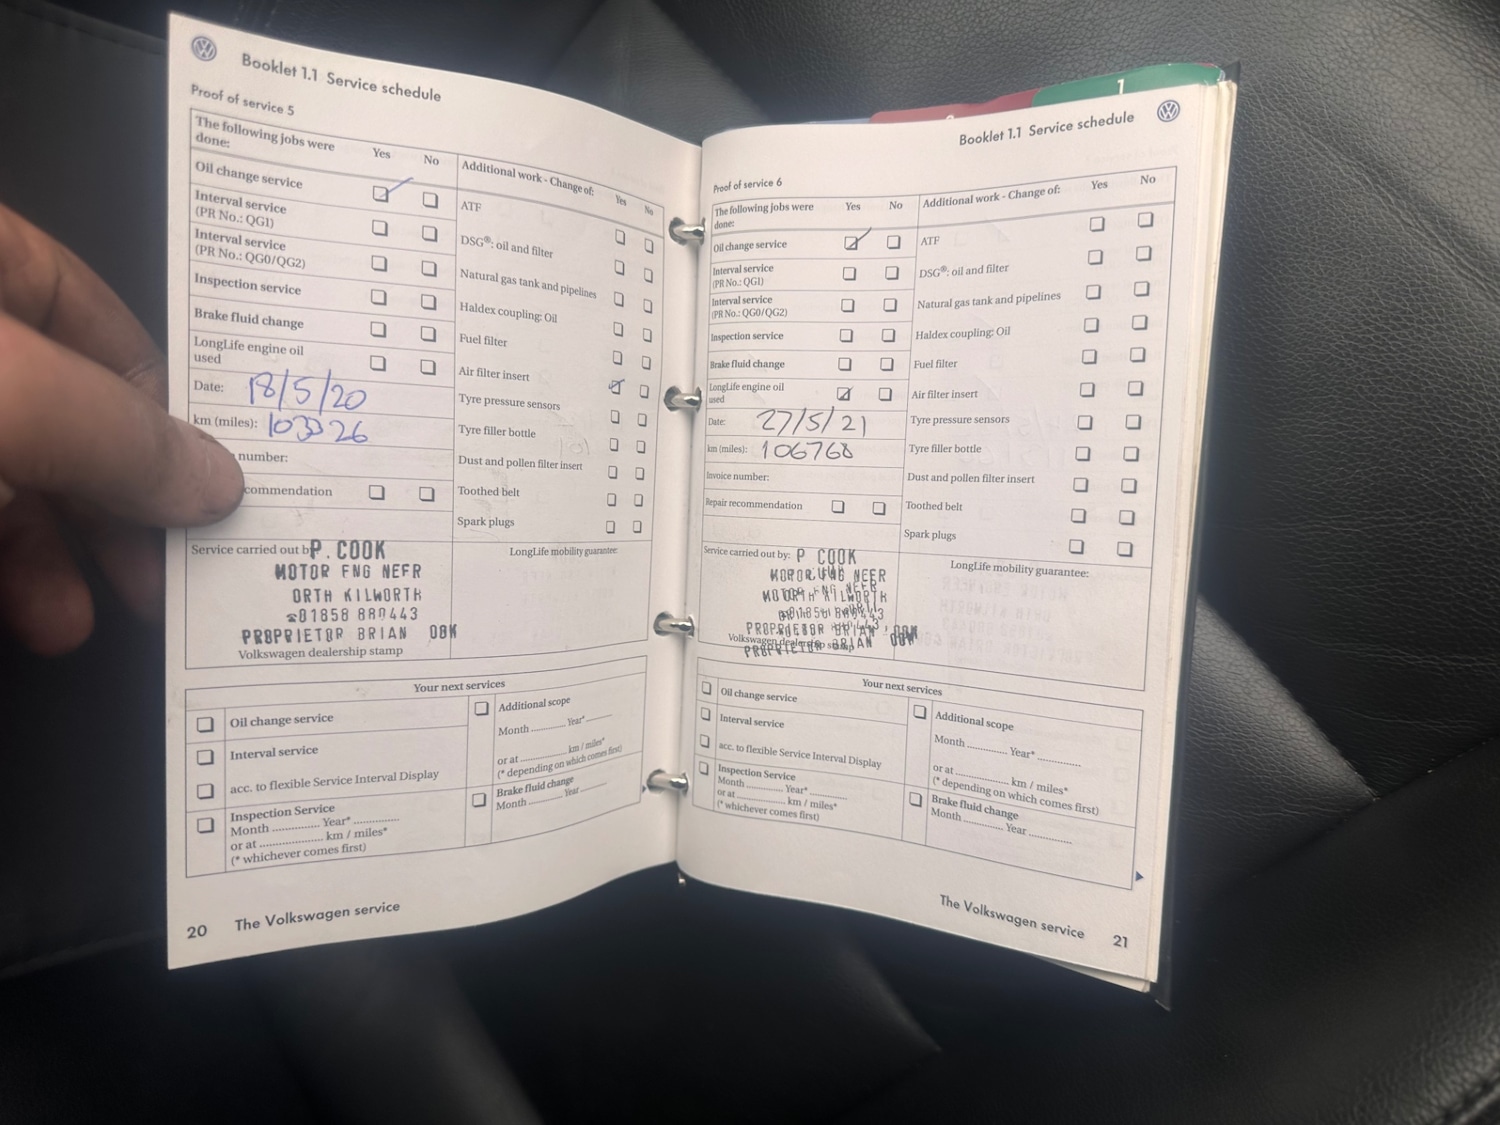 Booklet 1.1 Service schedule
Proof of service 5
The following jobs were done:
Yes No
Oil change service
Interval service
(PR No.: QG1)
Interval service
(PR No.: QG0/QG2)
Inspection service
Brake fluid change
LongLife engine oil
used
Date: 18/5/20
km (miles):
number:
commendation
Additional work - Change of:
Yes No
ATF
DSG®: oil and filter
Natural gas tank and pipelines
Haldex coupling: Oil
Fuel filter
Air filter insert
Tyre pressure sensors
Tyre filler bottle
Dust and pollen filter insert
Toothed belt
Spark plugs
Service carried out by
P. COOK
MOTOR ENG NEER
ORTH KILWORTH
☎01858 880443
PROPRIETOR BRIAN OOK
Volkswagen dealership stamp
LongLife mobility guarantee:
Your next services
Oil change service
Interval service
acc. to flexible Service Interval Display
Inspection Service
Month .............. Year* ..............
or at .................... km / miles*
(* whichever comes first)
Additional scope
Month ............ Year* ........
or at ............... km / miles*
(* depending on which comes first)
Brake fluid change
Month ............ Year ........
20 The Volkswagen service
1
Booklet 1.1 Service schedule
Proof of service 6
The following jobs were
done:
Yes No
Oil change service
Interval service
(PR No.: QG1)
Interval service
(PR No.: QG0/QG2)
Inspection service
Brake fluid change
LongLife engine oil
used
Date: 27/5/21
km (miles): 106768
Invoice number:
Repair recommendation
Additional work - Change of:
Yes No
ATF
DSG®: oil and filter
Natural gas tank and pipelines
Haldex coupling: Oil
Fuel filter
Air filter insert
Tyre pressure sensors
Tyre filler bottle
Dust and pollen filter insert
Toothed belt
Spark plugs
Service carried out by: P COOK
NEER
KILWORTH
PROPRIETOR BRIAN OOK
Volkswagen dealership stamp
PROPRIETOR BRIAN OOK
LongLife mobility guarantee:
Your next services
Oil change service
Interval service
acc. to flexible Service Interval Display
Inspection Service
Month .............. Year* ..............
or at .................... km / miles*
(* whichever comes first)
Additional scope
Month .............. Year* ..............
or at .................... km / miles*
(* depending on which comes first)
Brake fluid change
Month .............. Year ..............
The Volkswagen service 21